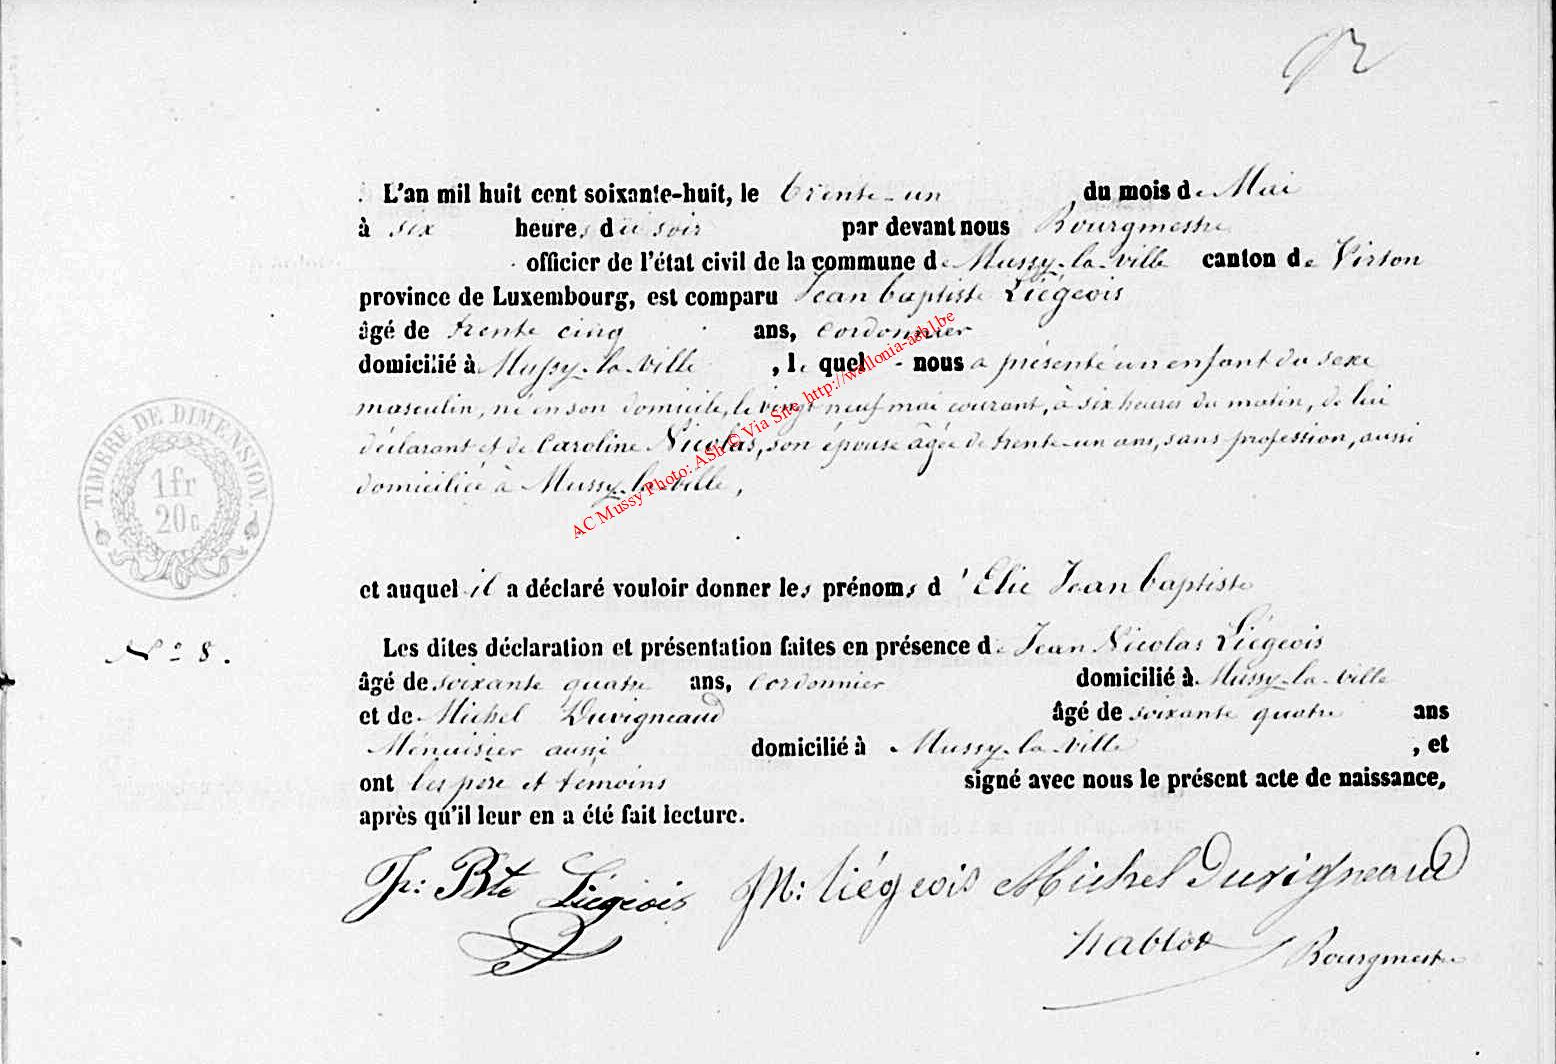 L'an mil huit cent soixante-huit, le trente-un du mois de Mai
à six heures du soir par devant nous Bourgmestre
officier de l'état civil de la commune de Mussy-la-ville canton de Virton
province de Luxembourg, est comparu Jean baptiste Liégeois
âgé de trente cinq ans, cordonnier
domicilié à Mussy-la-ville, le quel nous a présenté un enfant du sexe
masculin, né en son domicile, le vingt neuf mai courant, à six heures du matin, de lui
déclarant et de Caroline Nicolas, son épouse âgée de trente-un ans, sans profession, aussi
domiciliée à Mussy-la-ville,
AC Mussy Photo: ASh © Via Site http://wallonia-asbl.be
TIMBRE DE DIMENSION.
1 fr
20 c
et auquel il a déclaré vouloir donner les prénoms d'Elie Jean baptiste
N° 8.
Les dites déclaration et présentation faites en présence de Jean Nicolas Liégeois
âgé de soixante quatre ans, cordonnier domicilié à Mussy-la-ville
et de Michel Duvigneaud âgé de soixante quatre ans
Ménuisier aussi domicilié à Mussy-la-ville, et
ont les père et témoins signé avec nous le présent acte de naissance,
après qu'il leur en a été fait lecture.
Jn: Bte Liégeois Jn: liégeois Michel Duvigneaud
Bourgmestre